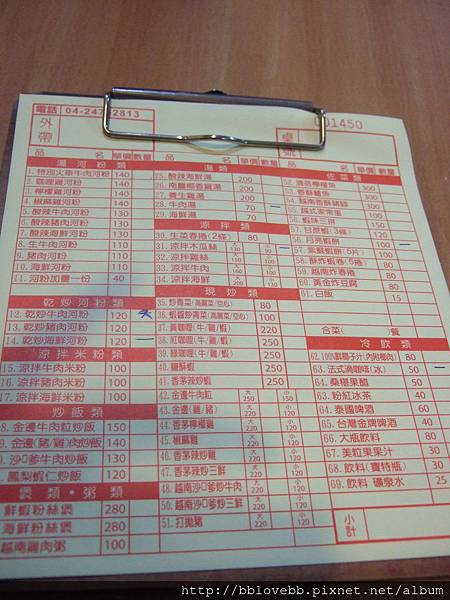 電話
外帶
桌號
01450
品名 單價 數量
湯河粉類
1.特別火車牛肉河粉 140
2.咖哩雞河粉 140
3.檸檬雞河粉 140
4.椒麻雞河粉 140
5.酸辣牛肉河粉 130
6.酸辣豬肉河粉 130
7.酸辣海鮮河粉 130
8.生牛肉河粉 130
9.豬肉河粉 110
10.海鮮河粉 110
11.河粉加量一份 40
乾炒河粉類
12.乾炒牛肉河粉 120
13.乾炒豬肉河粉 120
14.乾炒海鮮河粉 120
涼拌米粉類
15.涼拌牛肉米粉 100
16.涼拌豬肉米粉 100
17.涼拌海鮮米粉 100
炒飯類
金邊牛肉粒炒飯 150
金邊(豬/雞)肉炒飯 130
牛肉炒飯 130
鳳梨蝦仁炒飯 120
煲類・粥類
鮮蝦粉絲煲 280
海鮮粉絲煲 280
越南雞肉粥 100
品名 單價 數量
湯類
25.酸辣海鮮湯 200
26.南醋椰香雞湯
27.養生雞湯 200
28.牛肉湯 50
29.海鮮湯 50
涼拌類
30.生菜春捲(2條) 80
31.涼拌木瓜絲
32.涼拌雞絲
33.涼拌牛肉
34.涼拌海鮮
現炒類
35.炒青菜(高麗菜/空心)
36.蝦醬炒青菜(高麗菜/空心) 100
37.黃咖哩(牛/雞/蝦) 250
38.紅咖哩(牛/雞/蝦) 250
39.綠咖哩(牛/雞/蝦) 250
40.鹽酥蝦 250
41.香茅辣炒蝦 250
42.金邊牛肉粒 大 250 小 150
43.金邊(雞/豬) 大 220 小 120
44.香茅檸檬雞 大 220 小 120
45.椒麻雞 大 220 小 120
46.香茅辣炒雞 大 220 小 120
47.香茅辣炒三鮮 大 220 小 120
48.越南沙爹炒牛肉 大 220 小 120
49.越南沙爹炒雞 大 220 小 120
50.越南沙爹炒三鮮 大 220 小 120
51.打拋豬 大 220 小 120
品名 單價 數量
佐菜類
52.清蒸檸檬魚 300
53.香酥鱸魚 300
54.越南香酥豬腳 300
55.越式蒙常蛋 100
56.蝦味三拼 100
57.甘蔗蝦(3條)
56.月亮蝦餅
57.紫蘇蝦餅(5片)
58.酥炸蝦卷(5捲)
59.越南炸春捲 80
60.黃金炸豆腐 80
61.白飯 15
合菜( )餐
冷飲類
62.100%鮮椰子汁(內附椰肉) 80
63.法式滴咖啡(冰) 50
64.桑椹果醋 50
63.粉紅冰茶 40
64.泰國啤酒 60
65.台灣金牌啤酒 60
66.大瓶飲料 80
67.美粒果果汁 30
68.飲料(寶特瓶) 30
69.飲料 礦泉水 25
小計
http://bblovebb.pixnet.net/album